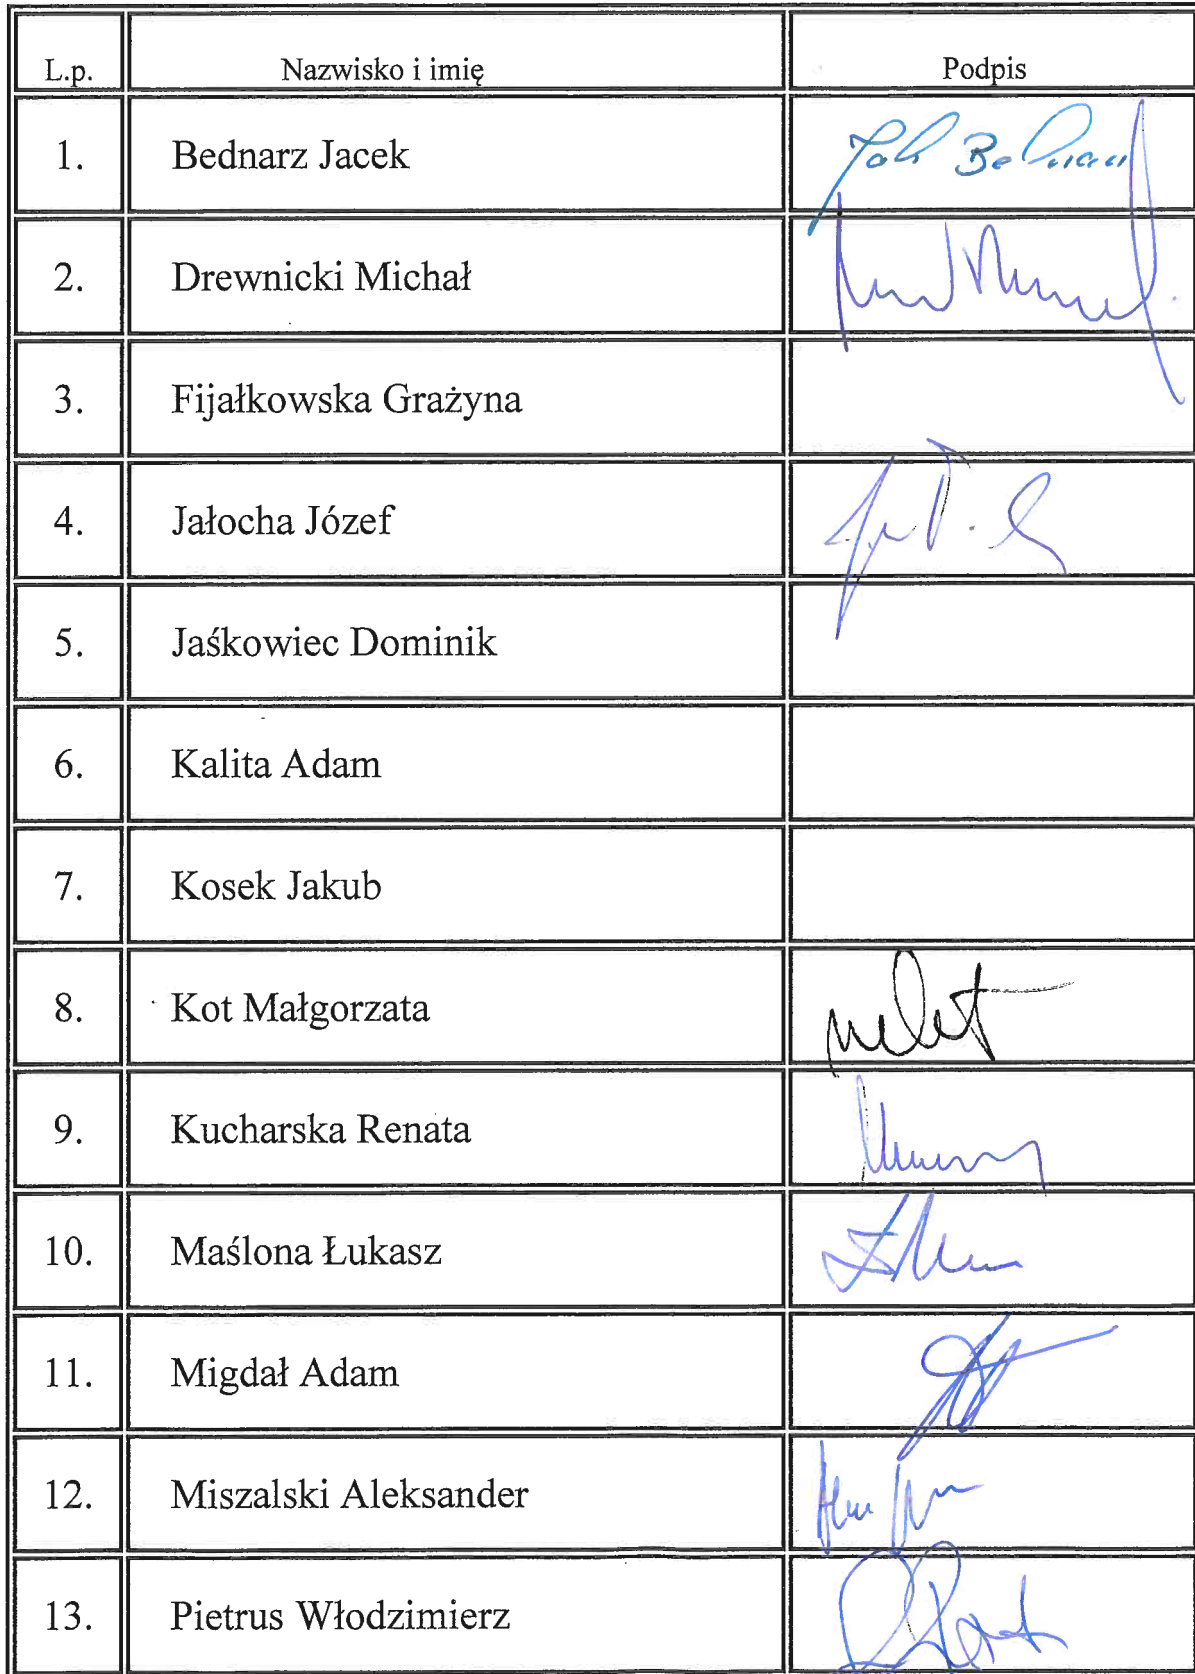 L.p. Nazwisko i imię Podpis
1. Bednarz Jacek
2. Drewnicki Michał
3. Fijałkowska Grażyna
4. Jałocha Józef
5. Jaśkowiec Dominik
6. Kalita Adam
7. Kosek Jakub
8. Kot Małgorzata
9. Kucharska Renata
10. Maślona Łukasz
11. Migdał Adam
12. Miszalski Aleksander
13. Pietrus Włodzimierz